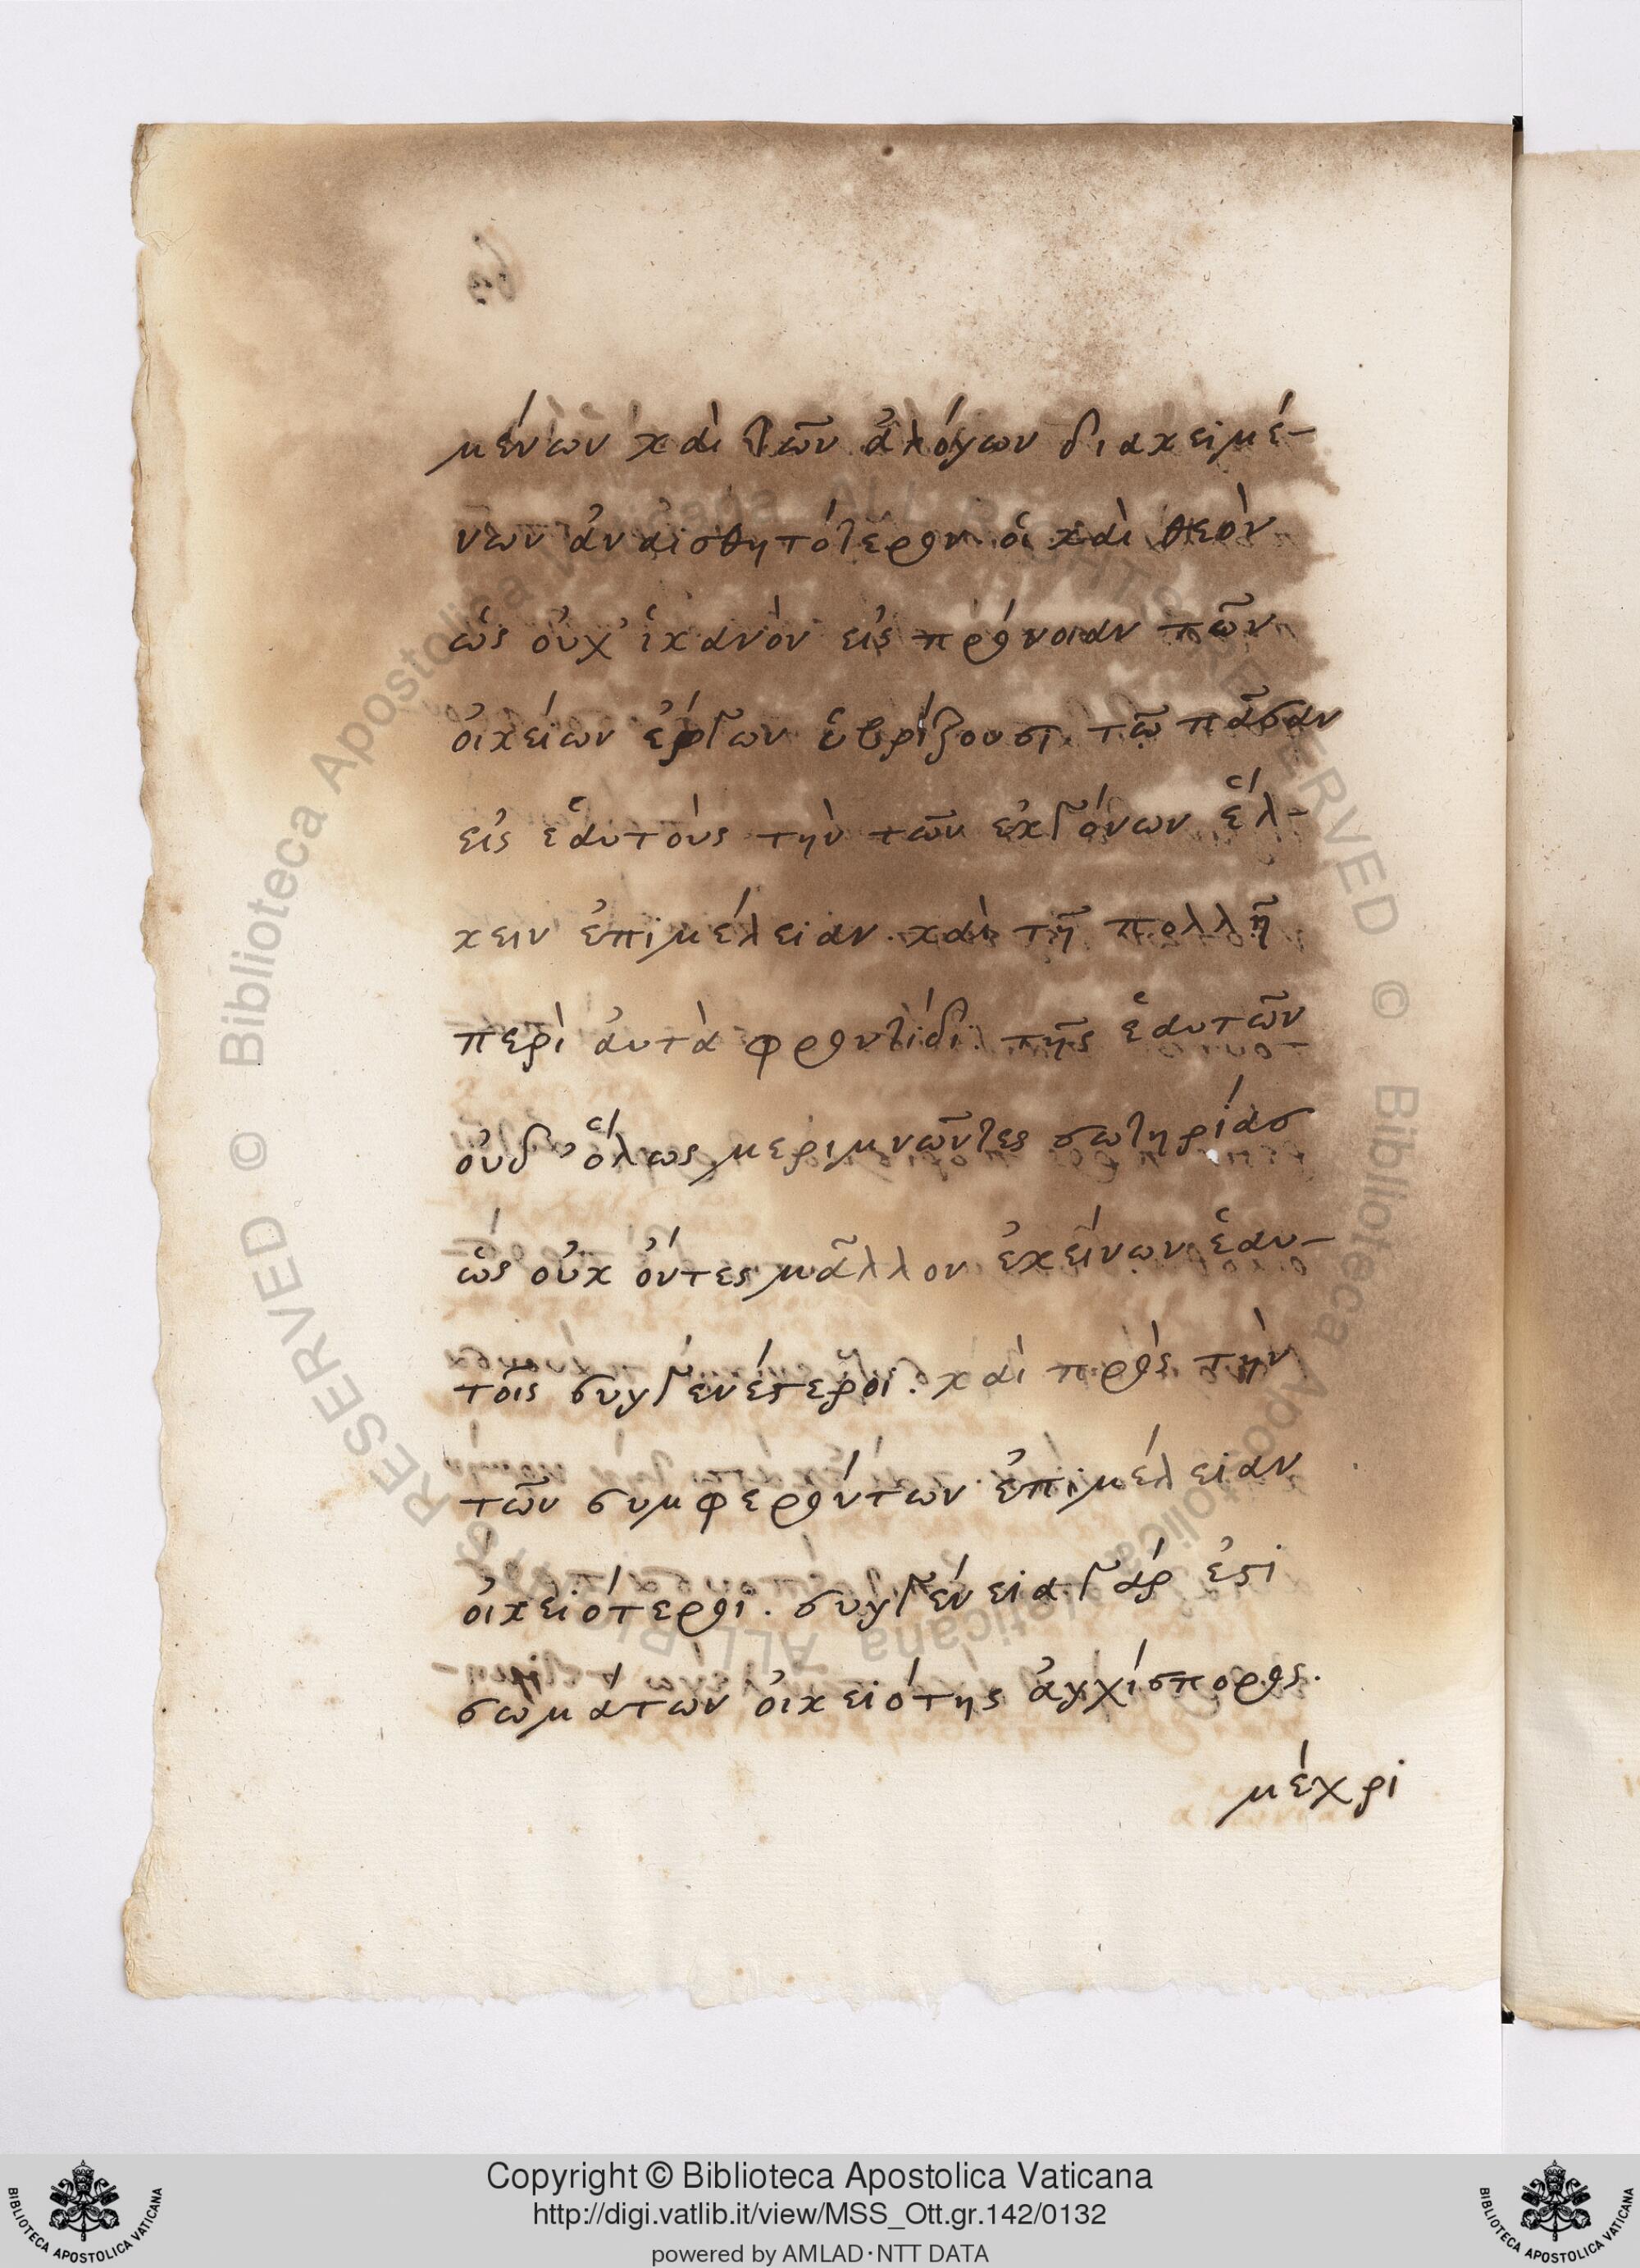 μένων καὶ τῶν ἀλόγων διακειμέ-
νων ἀναισθητότερον. οἳ καὶ θεὸν
ὡς οὐχ' ἱκανὸν εἰς πρόνοιαν τῶν
οἰκείων ἔργων ὑβρίζουσι. τῷ πᾶσαν
εἰς ἑαυτοὺς τὴν τῶν ἐκγόνων ἕλ-
κειν ἐπιμέλειαν. καὶ τῇ πολλῇ
περὶ αὐτὰ φροντίδι. τῆς ἑαυτῶν
οὐδ' ὅλως μεριμνῶντες σωτηρίασ
ὡς οὐκ ὄντες μᾶλλον ἐκείνων ἑαυ-
τοῖς συγγενέστεροι. καὶ πρὸς τὴν
τῶν συμφερόντων ἐπιμέλειαν
οἰκειότεροι. συγγένεια γάρ ἐστι
σωμάτων οἰκειότης ἀγχίσπορος.
μέχρι
Biblioteca Apostolica Vaticana ALL RIGHTS RESERVED ©
Biblioteca Apostolica Vaticana ALL RIGHTS RESERVED ©
Copyright © Biblioteca Apostolica Vaticana
http://digi.vatlib.it/view/MSS_Ott.gr.142/0132
powered by AMLAD·NTT DATA
BIBLIOTECA APOSTOLICA VATICANA
BIBLIOTECA APOSTOLICA VATICANA